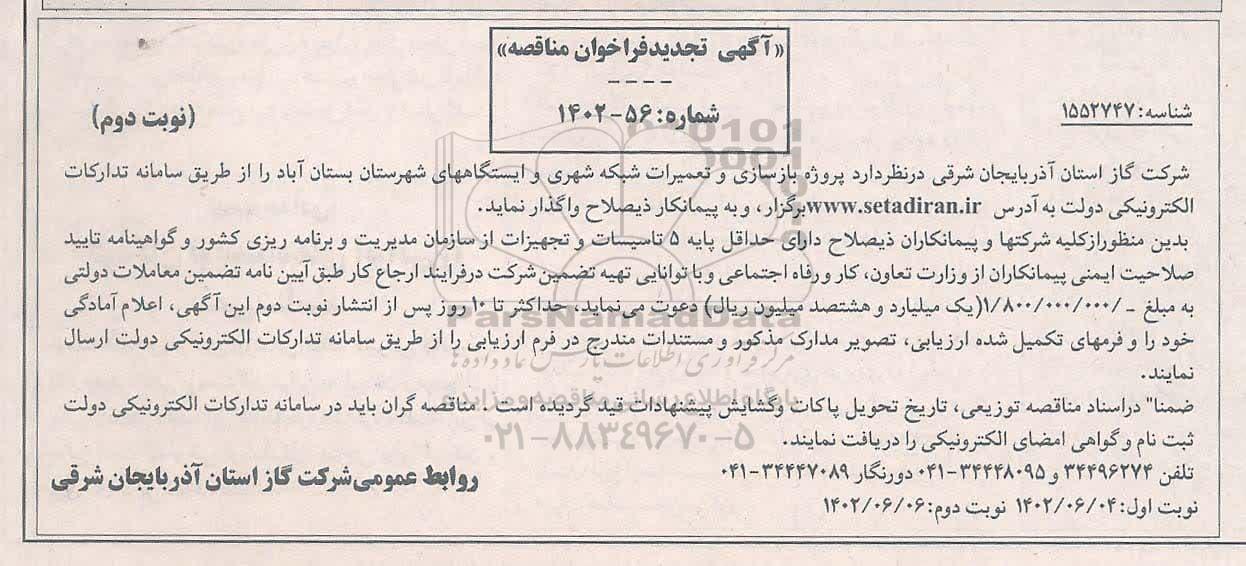 «آگهی تجدیدفراخوان مناقصه»
شماره: ۵۶-۱۴۰۲
شناسه: ۱۵۵۲۷۴۷
(نوبت دوم)
شرکت گاز استان آذربایجان شرقی درنظردارد پروژه بازسازی و تعمیرات شبکه شهری و ایستگاههای شهرستان بستان آباد را از طریق سامانه تدارکات
الکترونیکی دولت به آدرس www.setadiran.ir برگزار، و به پیمانکار ذیصلاح واگذار نماید.
بدین منظورازکلیه شرکتها و پیمانکاران ذیصلاح دارای حداقل پایه ۵ تاسیسات و تجهیزات از سازمان مدیریت و برنامه ریزی کشور و گواهینامه تایید
صلاحیت ایمنی پیمانکاران از وزارت تعاون، کار ورفاه اجتماعی و با توانایی تهیه تضمین شرکت درفرایند ارجاع کار طبق آیین نامه تضمین معاملات دولتی
به مبلغ -/۱/۸۰۰/۰۰۰/۰۰۰(یک میلیارد و هشتصد میلیون ریال) دعوت می‌نماید، حداکثر تا ۱۰ روز پس از انتشار نوبت دوم این آگهی، اعلام آمادگی
خود را و فرمهای تکمیل شده ارزیابی، تصویر مدارک مذکور و مستندات مندرج در فرم ارزیابی را از طریق سامانه تدارکات الکترونیکی دولت ارسال
نمایند.
ضمنا" دراسناد مناقصه توزیعی، تاریخ تحویل پاکات وگشایش پیشنهادات قید گردیده است . مناقصه گران باید در سامانه تدارکات الکترونیکی دولت
ثبت نام و گواهی امضای الکترونیکی را دریافت نمایند.
تلفن ۳۴۴۹۶۲۷۴ و ۳۴۴۴۸۰۹۵-۰۴۱ دورنگار ۳۴۴۴۷۰۸۹-۰۴۱
نوبت اول: ۱۴۰۲/۰۶/۰۴ نوبت دوم: ۱۴۰۲/۰۶/۰۶
روابط عمومی شرکت گاز استان آذربایجان شرقی
ParsNamadData
مرکز فرآوری اطلاعات پارس نماد داده ها
پایگاه اطلاع رسانی مناقصه و مزایده
۰۲۱-۸۸۳۴۹۶۷۰-۵